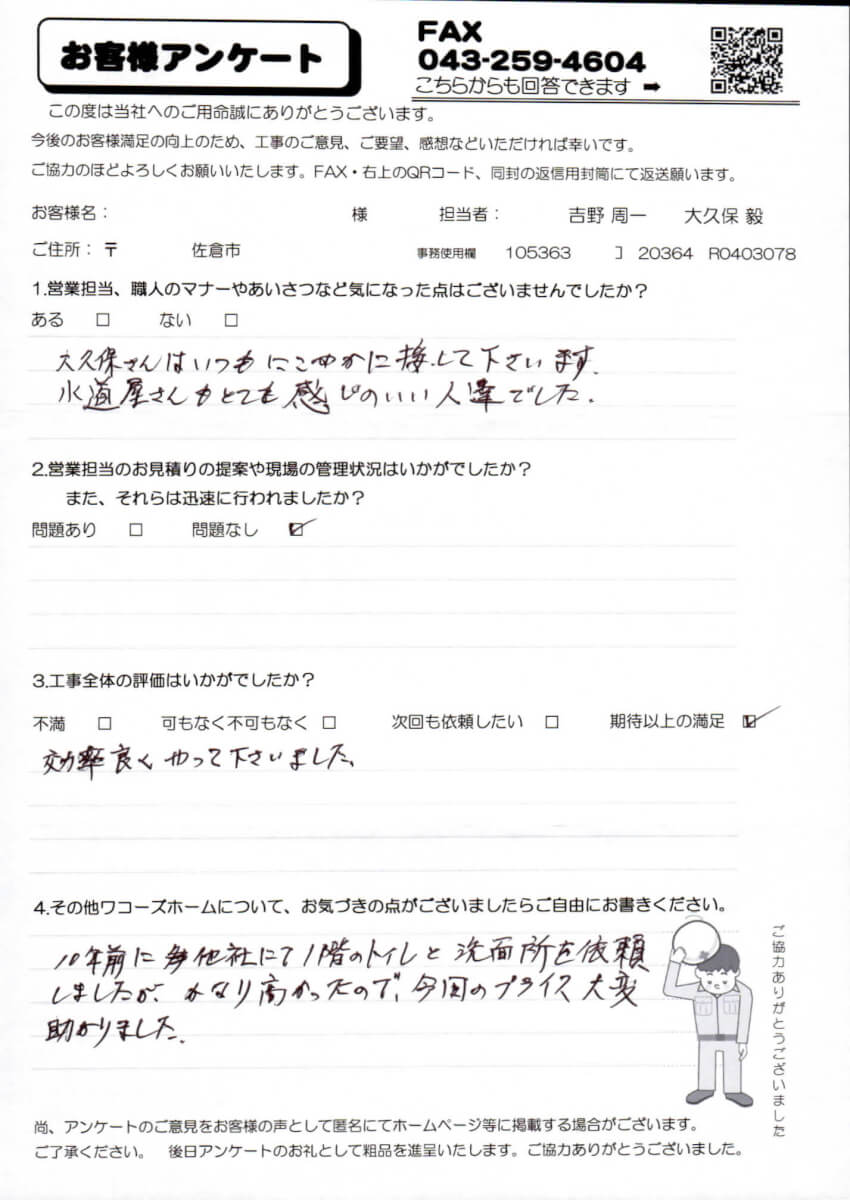 お客様アンケート
FAX
043-259-4604
こちらからも回答できます ➡
この度は当社へのご用命誠にありがとうございます。
今後のお客様満足の向上のため、工事のご意見、ご要望、感想などいただければ幸いです。
ご協力のほどよろしくお願いいたします。FAX・右上のQRコード、同封の返信用封筒にて返送願います。
お客様名： 様 担当者： 吉野 周一 大久保 毅
ご住所：〒 佐倉市 事務使用欄 105363 コ 20364 R0403078
1.営業担当、職人のマナーやあいさつなど気になった点はございませんでしたか？
ある □ ない □
大久保さんはいつもにこやかに接して下さいます.
水道屋さんもとても感じのいい人達でした.
2.営業担当のお見積りの提案や現場の管理状況はいかがでしたか？
また、それらは迅速に行われましたか？
問題あり □ 問題なし ☑
3.工事全体の評価はいかがでしたか？
不満 □ 可もなく不可もなく □ 次回も依頼したい □ 期待以上の満足 ☑
効率良くやって下さいました、
4.その他ワコーズホームについて、お気づきの点がございましたらご自由にお書きください。
10年前に他社にて1階のトイレと洗面所を依頼
しましたが、かなり高かったので、今回のプライス大変
助かりました.
ご協力ありがとうございました
尚、アンケートのご意見をお客様の声として匿名にてホームページ等に掲載する場合がございます。
ご了承ください。 後日アンケートのお礼として粗品を進呈いたします。ご協力ありがとうございました。